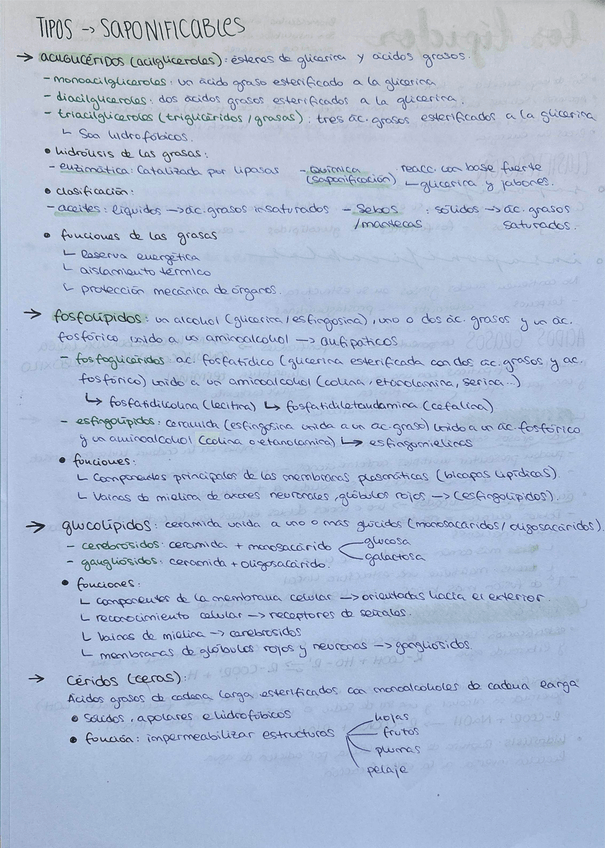 TIPOS → SAPONIFICABLES
→ acilglicéridos (acilgliceroles): ésteres de glicerina y ácidos grasos.
- monoacilgliceroles: un ácido graso esterificado a la glicerina
- diacilgliceroles: dos ácidos grasos esterificados a la glicerina.
- triacilgliceroles (triglicéridos/grasas): tres ác. grasos esterificados a la glicerina
↳ Son hidrofóbicos.
• hidrólisis de las grasas:
- enzimática: catalizada por lipasas - química (saponificación) reacc. con base fuerte
↳ glicerina y jabones.
• clasificación:
- aceites: líquidos → ác. grasos insaturados - Sebos /mantecas : sólidos → ác. grasos saturados.
• funciones de las grasas
↳ Reserva energética
↳ aislamiento térmico
↳ protección mecánica de órganos.
→ fosfolípidos: un alcohol (glicerina/esfingosina), uno o dos ác. grasos y un ác.
fosfórico unido a un aminoalcohol → anfipáticos
- fosfoglicéridos: ác. fosfatídico (glicerina esterificada con dos ác. grasos y ác.
fosfórico) unido a un aminoalcohol (colina, etanolamina, serina...)
↳ fosfatidilcolina (lecitina) ↳ fosfatidiletanolamina (cefalina)
- esfingolípidos: ceramida (esfingosina unida a un ác. graso) unido a un ác. fosfórico
y un aminoalcohol (colina o etanolamina) ↳ esfingomielinas
• funciones:
↳ Componentes principales de las membranas plasmáticas (bicapas lipídicas).
↳ Vainas de mielina de axones neuronales, glóbulos rojos → (esfingolípidos).
→ glucolípidos: ceramida unida a uno o más glúcidos (monosacáridos/oligosacáridos).
- cerebrósidos: ceramida + monosacárido glucosa
galactosa
- gangliósidos: ceramida + oligosacárido.
• funciones:
↳ componentes de la membrana celular → orientadas hacia el exterior.
↳ reconocimiento celular → receptores de señales.
↳ vainas de mielina → cerebrósidos
↳ membranas de glóbulos rojos y neuronas → gangliósidos.
→ céridos (ceras):
Ácidos grasos de cadena larga esterificados con monoalcoholes de cadena larga
• sólidos, apolares e hidrofóbicos
• función: impermeabilizar estructuras hojas
frutos
plumas
pelaje